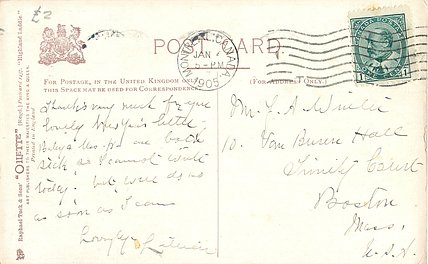 £2
POST CARD.
MONTREAL, CANADA
JAN
5 - PM
1905
CANADA POSTAGE
1 1
FOR POSTAGE, IN THE UNITED KINGDOM ONLY,
THIS SPACE MAY BE USED FOR CORRESPONDENCE
(FOR ADDRESS ONLY.)
Raphael Tuck & Sons' "OILETTE" [Regd.] Postcard "Highland Laddie"
ART PUBLISHERS TO THEIR MAJESTIES THE KING & QUEEN.
Printed in England
Thanks very much for your
lovely New Year's letter
are both
sick so I cannot write
today. but will do so
as soon as I can
10. Van Buren Hall
Trinity Court
Boston
Mass.
U.S.A.